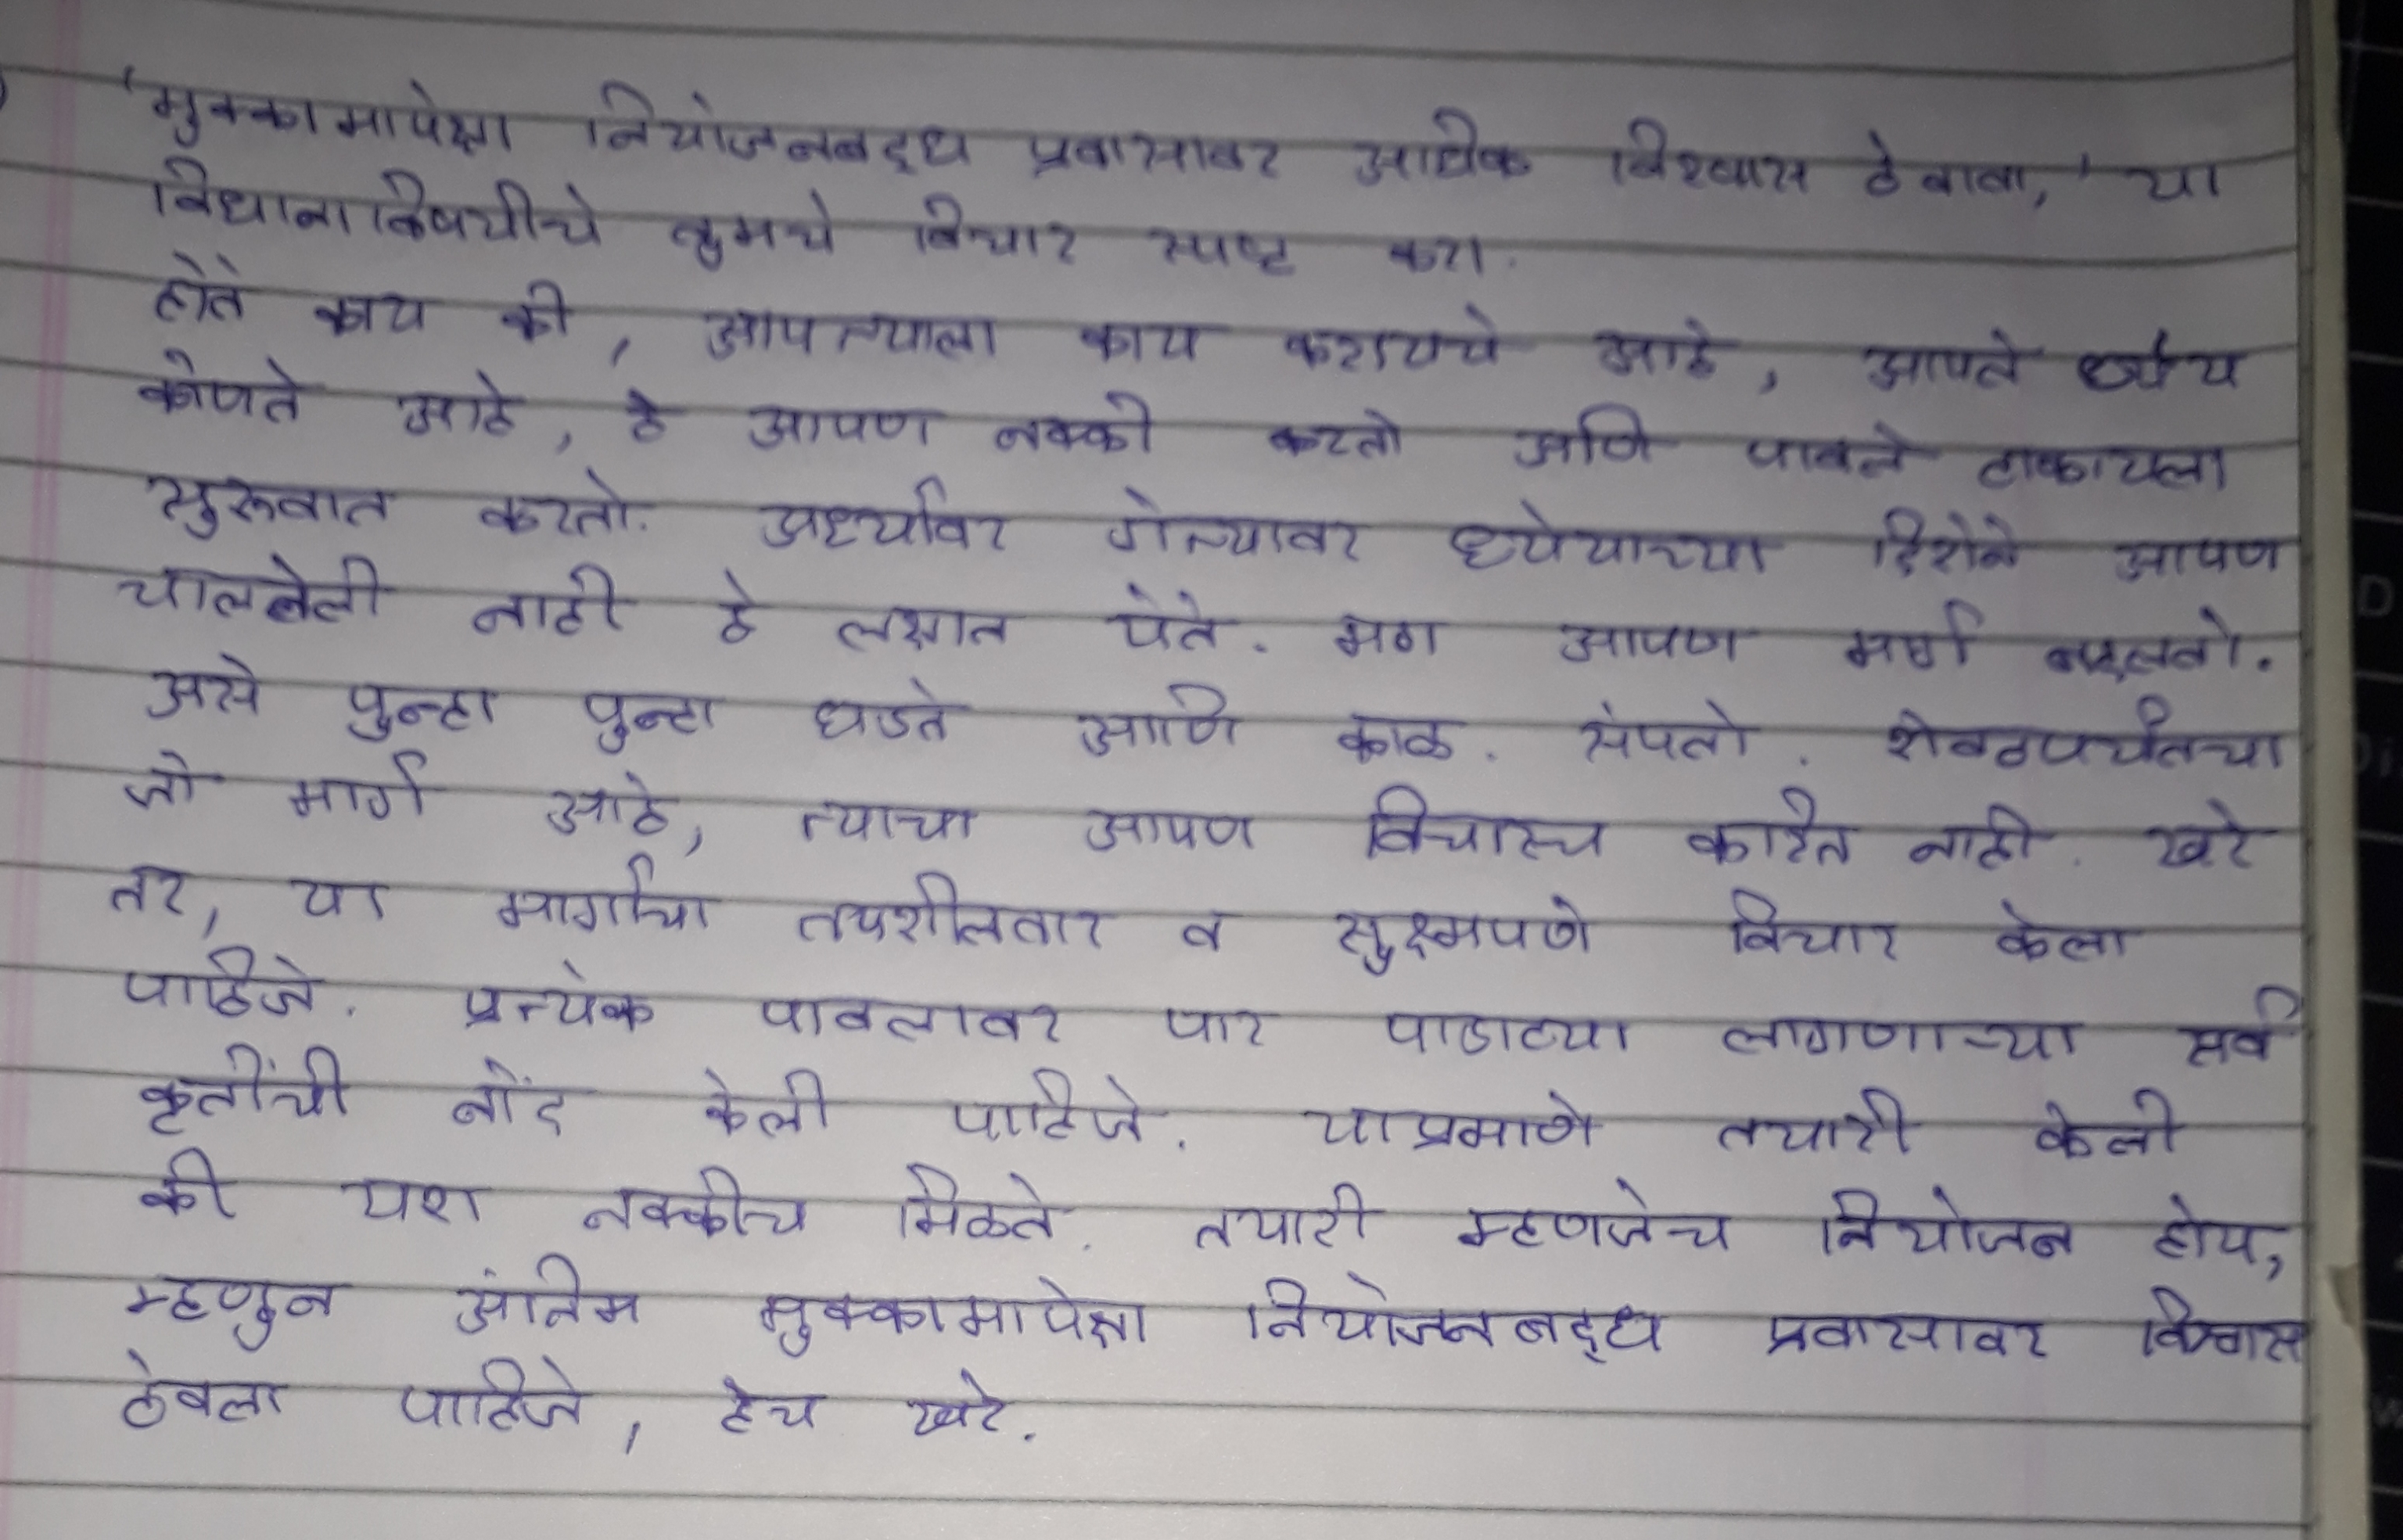 'मुक्कामापेक्षा नियोजनबद्ध प्रवासावर अधिक विश्वास ठेवावा,' या
विधानाविषयीचे तुमचे विचार स्पष्ट करा.
होते काय की, आपल्याला काय करायचे आहे, आपले ध्येय
कोणते आहे, हे आपण नक्की करतो आणि पावले टाकायला
सुरुवात करतो. अर्ध्यावर गेल्यावर ध्येयाच्या दिशेने आपण
चाललेली नाही हे लक्षात येते. मग आपण मार्ग बदलतो.
असे पुन्हा पुन्हा घडते आणि काळ. संपतो. शेवटपर्यंतचा
जो मार्ग आहे, त्याचा आपण विचारच करित नाही. खरे
तर, या मार्गाचा तपशीलवार व सुक्ष्मपणे विचार केला
पाहिजे. प्रत्येक पावलावर पार पाडाव्या लागणाऱ्या सर्व
कृतींची नोंद केली पाहिजे. याप्रमाणे तयारी केली
की यश नक्कीच मिळते. तयारी म्हणजेच नियोजन होय,
म्हणुन अंतिम मुक्कामापेक्षा नियोजनबद्ध प्रवासावर विश्वास
ठेवला पाहिजे, हेच खरे.